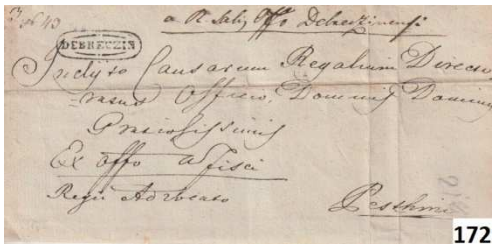 a R. Salis Offo Debreczinensi
DEBRECZIN
Inclyto Causarum Regalium Directo
ratus Officio, Dominis Dominis
Praeiosissimis
Ex offo
Regii Advocato
Pesthini
172